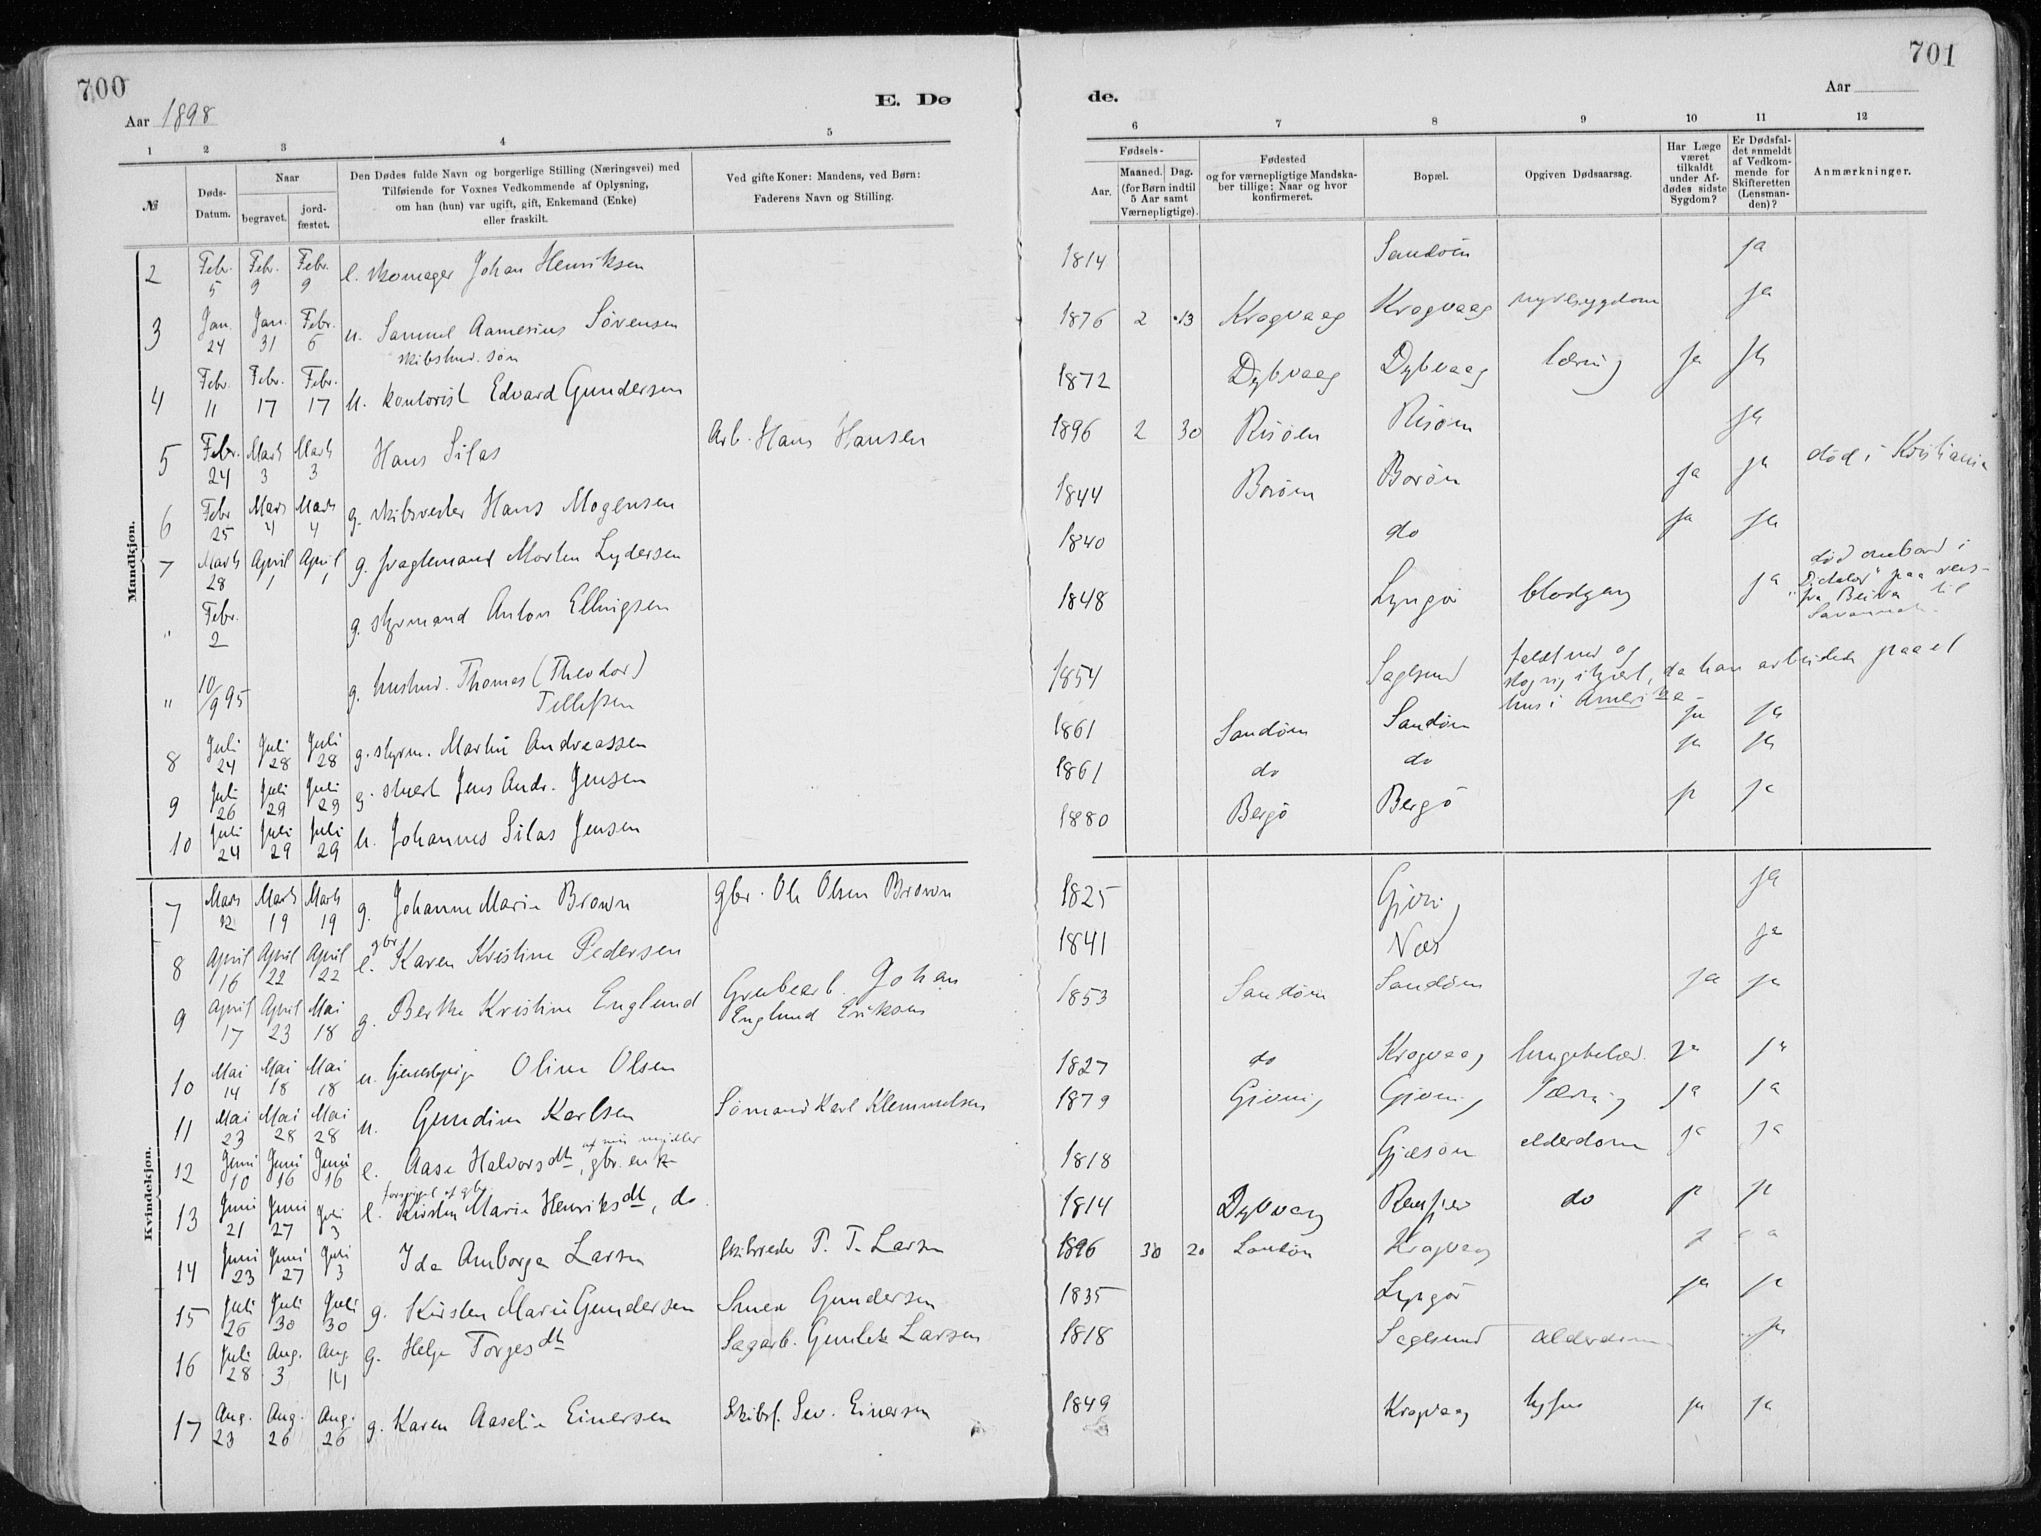 700
701
Aar 1898
E. Dø
de.
Aar
1 2 3 4 5 6 7 8 9 10 11 12
№
Døds-Datum.
Naar
begravet.
jord-fæstet.
Den Dødes fulde Navn og borgerlige Stilling (Næringsvei) med
Tilføiende for Voxnes Vedkommende af Oplysning,
om han (hun) var ugift, gift, Enkemand (Enke)
eller fraskilt.
Ved gifte Koner: Mandens, ved Børn:
Faderens Navn og Stilling.
Fødsels-
Aar.
Maaned. Dag.
(for Børn indtil
5 Aar samt
Værnepligtige).
Fødested
og for værnepligtige Mandska-
ber tillige: Naar og hvor
konfirmeret.
Bopæl.
Opgiven Dødsaarsag.
Har Læge
været
tilkaldt
under Af-
dødes sidste
Sygdom?
Er Dødsfal-
det anmeldt
af Vedkom-
mende for
Skifteretten
(Lensman-
den)?
Anmærkninger.
Mandkjøn.
2 Febr. 5 Febr. 9 Febr. 9 e. skomager Johan Henriksen 1814 Sandøen ja
3 Jan. 24 Jan. 31 Febr. 6 u. Samuel Aamesius Sørensen 1876 2 13 Kragvaag Kragvaag nyresygdom ja
skibstmd. søn
4 Febr. 11 Febr. 17 Febr. 17 u. kontorist Edvard Gundersen 1872 Dybvaag Dybvaag tæring ja ja
5 Febr. 24 Marts 3 Marts 3 Hans Silas Arb. Hans Hansen 1896 2 30 Risøen Risøen ja
6 Febr 25 Marts 4 Marts 4 g. skibsreder Hans Mogensen 1844 Borøen Borøen ja ja død i Kristiania
7 Marts 28 April 1 April 1 g. fragtemand Morten Lydersen 1840 do ja ja
" Febr. 2 g. styrmand Anton Ellingsen 1848 Lyngør blodgang ja død ombord i
"Dictator" paa reis-
fra Beira til
Savannah.
" 10/9 95 g. husmd. Thomas (Theodor) Tellefsen 1854 Saglsund faldt ned og
slog sig ihjæl, da han arbeidede paa et
hus i Amerika.
8 Juli 24 Juli 28 Juli 28 g. styrm. Martin Andreassen 1861 Sandøen Sandøen ja ja
9 Juli 26 Juli 29 Juli 29 g. stuert Jens Andr. Jensen 1861 do do ja ja
10 Juli 24 Juli 29 Juli 29 u. Johannes Silas Jensen 1880 Bergø Bergø ja ja
Kvindekjøn.
7 Marts 12 Marts 19 Marts 19 g. Johanne Marie Brown gbr. Ole Olsen Brown 1825 Gjeving ja
8 April 16 April 22 April 22 e. gbr Karen Kristine Pedersen 1841 Næs ja
9 April 17 April 23 Mai 18 g. Berthe Kristine Englund Grubearb. Johan
Englund Eriksen 1853 Sandøen Sandøen ja ja
10 Mai 14 Mai 18 Mai 18 u. tjenestepige Oline Olsen 1827 do Kragvaag lungebetæn. ja ja
11 Mai 23 Mai 28 Mai 28 u. Gundine Karlsen Sømand Karl Klemmetsen 1879 Gjeving Gjeving Tæring ja ja
12 Juni 10 Juni 16 Juni 16 e. Aase Halvorsdtt, gbr. enk- 1818 Gjæsøen alderdom ja ja
af min midler
13 Juni 21 Juni 27 Juli 3 e. Kirsten Marie Henriksdtt, do 1814 Dybvaag do ja ja
14 Juni 23 Juni 27 Juli 3 Ida Amborga Larsen Skibsreder P. T. Larsen 1896 30 20 Kragvaag
15 Juli 26 Juli 30 Juli 30 g. Kirsten Marie Gundersen Gundersen 1835 Lyngør ja ja
16 Juli 28 Aug. 3 Aug. 14 g. Helje Torgesdtt Sagarb. Larsen 1818 Saglsund alderdom ja
17 Aug. 23 Aug. 26 Aug. 26 g. Karen Aaselie Einersen Skibsf. Sev. Einersen 1849 Kragvaag tyfus ja ja